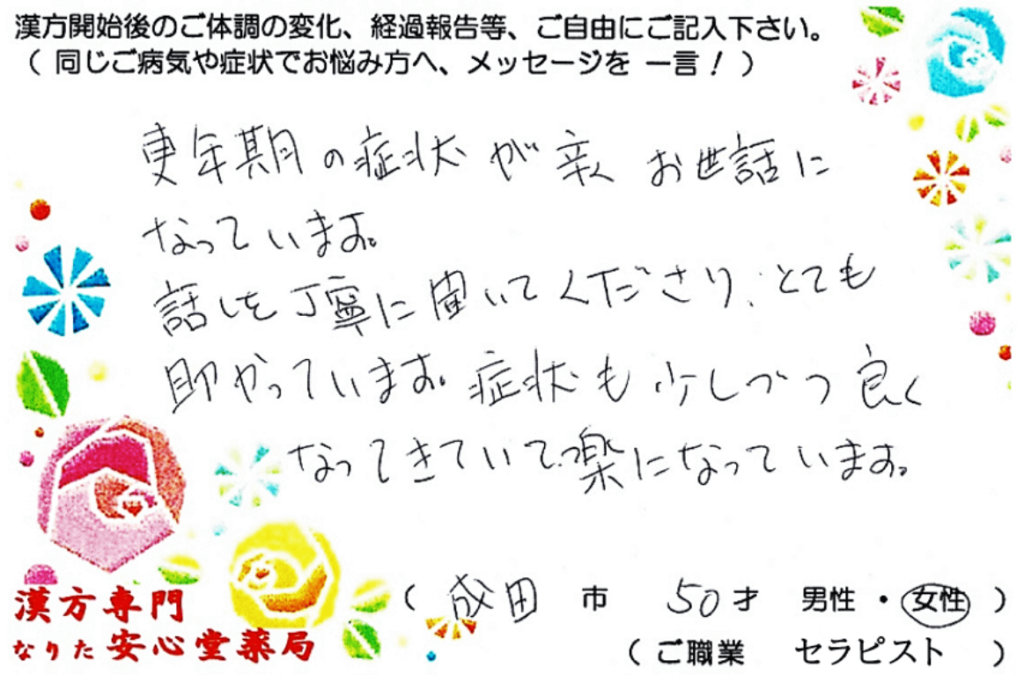 漢方開始後のご体調の変化、経過報告等、ご自由にご記入下さい。
( 同じご病気や症状でお悩み方へ、メッセージを 一言！ )
更年期の症状が辛く お世話に
なっています。
話しを丁寧に聞いてくださり、とても
助かっています。症状も少しづつ良く
なってきていて、楽になっています。
( 成田 市 50才 男性 ・ 女性 )
漢方専門
なりた 安心堂薬局
( ご職業 セラピスト )